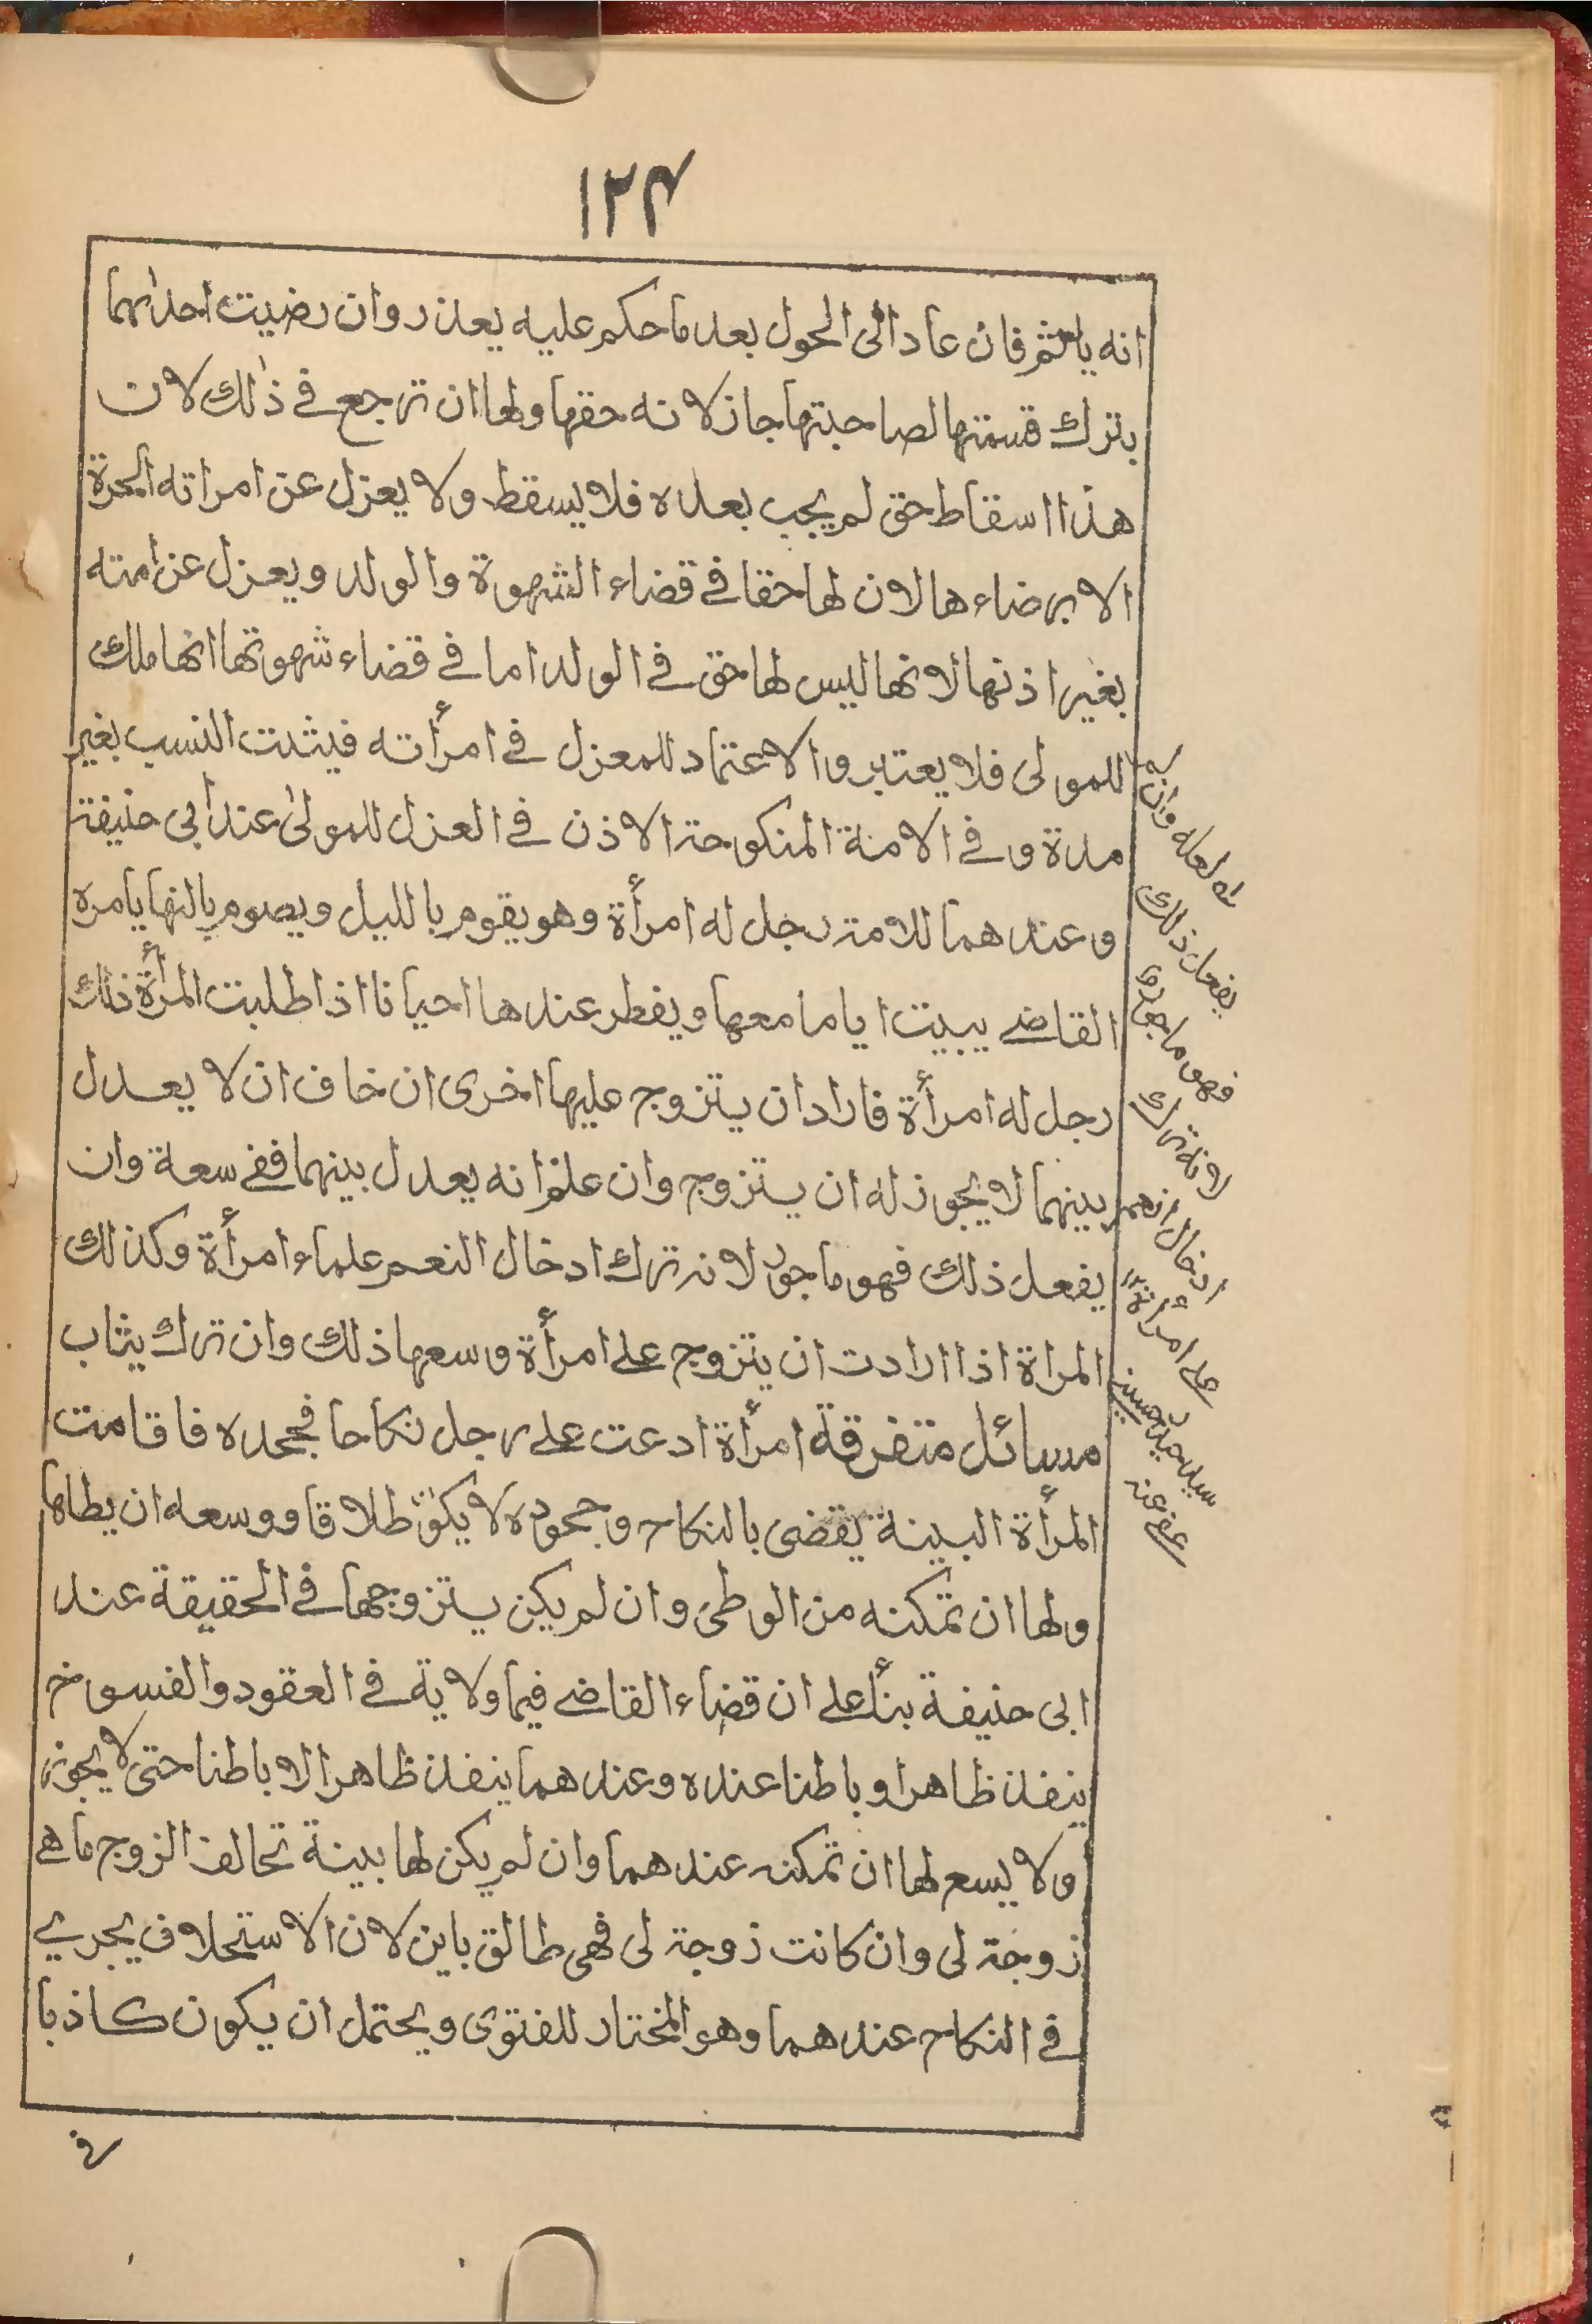 ١٢٤
انه ياثم فان عاد الى الحول بعد ما حكم عليه يعذر وان رضيت احدٰهما
بترك قسمتها لصاحبتها جاز لانه حقها ولها ان ترجع في ذٰلك لان
هذا اسقاط حق لم يجب بعده فلا يسقط ولا يعزل عن امراته الحرة
الا برضاءها لان لها حقا في قضاء الشهوة والولد ويعزل عن امته
بغير اذنها لانها ليس لها حق في الولد اما في قضاء شهوتها انها ملك
للمولى فلا يعتبر والاعتماد للمعزل في امرأته فيثبت النسب بغير
مدة وفي الامة المنكوحة الاذن في العزل للمولىٰ عند أبي حنيفة
وعندهما للامة رجل له امرأة وهو يقوم بالليل ويصوم بالنهار يامره
القاضي يبيت اياما معها ويفطر عندها احيانا اذا طلبت المرأة ذٰلك
رجل له امرأة فاراد ان يتزوج عليها اخرى ان خاف ان لا يعدل
بينهما لا يجوز له ان يتزوج وان علم انه يعدل بينهما ففي سعة وان
يفعل ذلك فهو ماجور لانه ترك ادخال النعم علماء امرأة وكذلك
المراة اذا ارادت ان يتزوج على امرأة وسعها ذلك وان ترك يثاب
مسائل متفرقة امرأة ادعت على رجل نكاحا فجحده فاقامت
المرأة البينة يقضى بالنكاح وجحوده لا يكون طلاقا ووسعه ان يطاها
ولها ان تمكنه من الوطي وان لم يكن يتزوجها في الحقيقة عند
ابي حنيفة بنأ على ان قضاء القاضي فيما ولاية في العقود والفسوخ
ينفذ ظاهرا وباطنا عنده وعندهما ينفذ ظاهرا لا باطنا حتى لا يجوز
ولا يسع لها ان تمكنه عندهما وان لم يكن لها بينة تحالف الزوج ما هي
زوجة لي وان كانت زوجة لي فهي طالق باين لان الاستحلاف يجري
في النكاح عندهما وهو المختار للفتوى ويحتمل ان يكون كاذبا
في
له لعله وان لم
يفعل ذلك
فهو ماجور
لانه ترك
ادخال الهم
على امرأته
سيد حسيني
عفي عنه